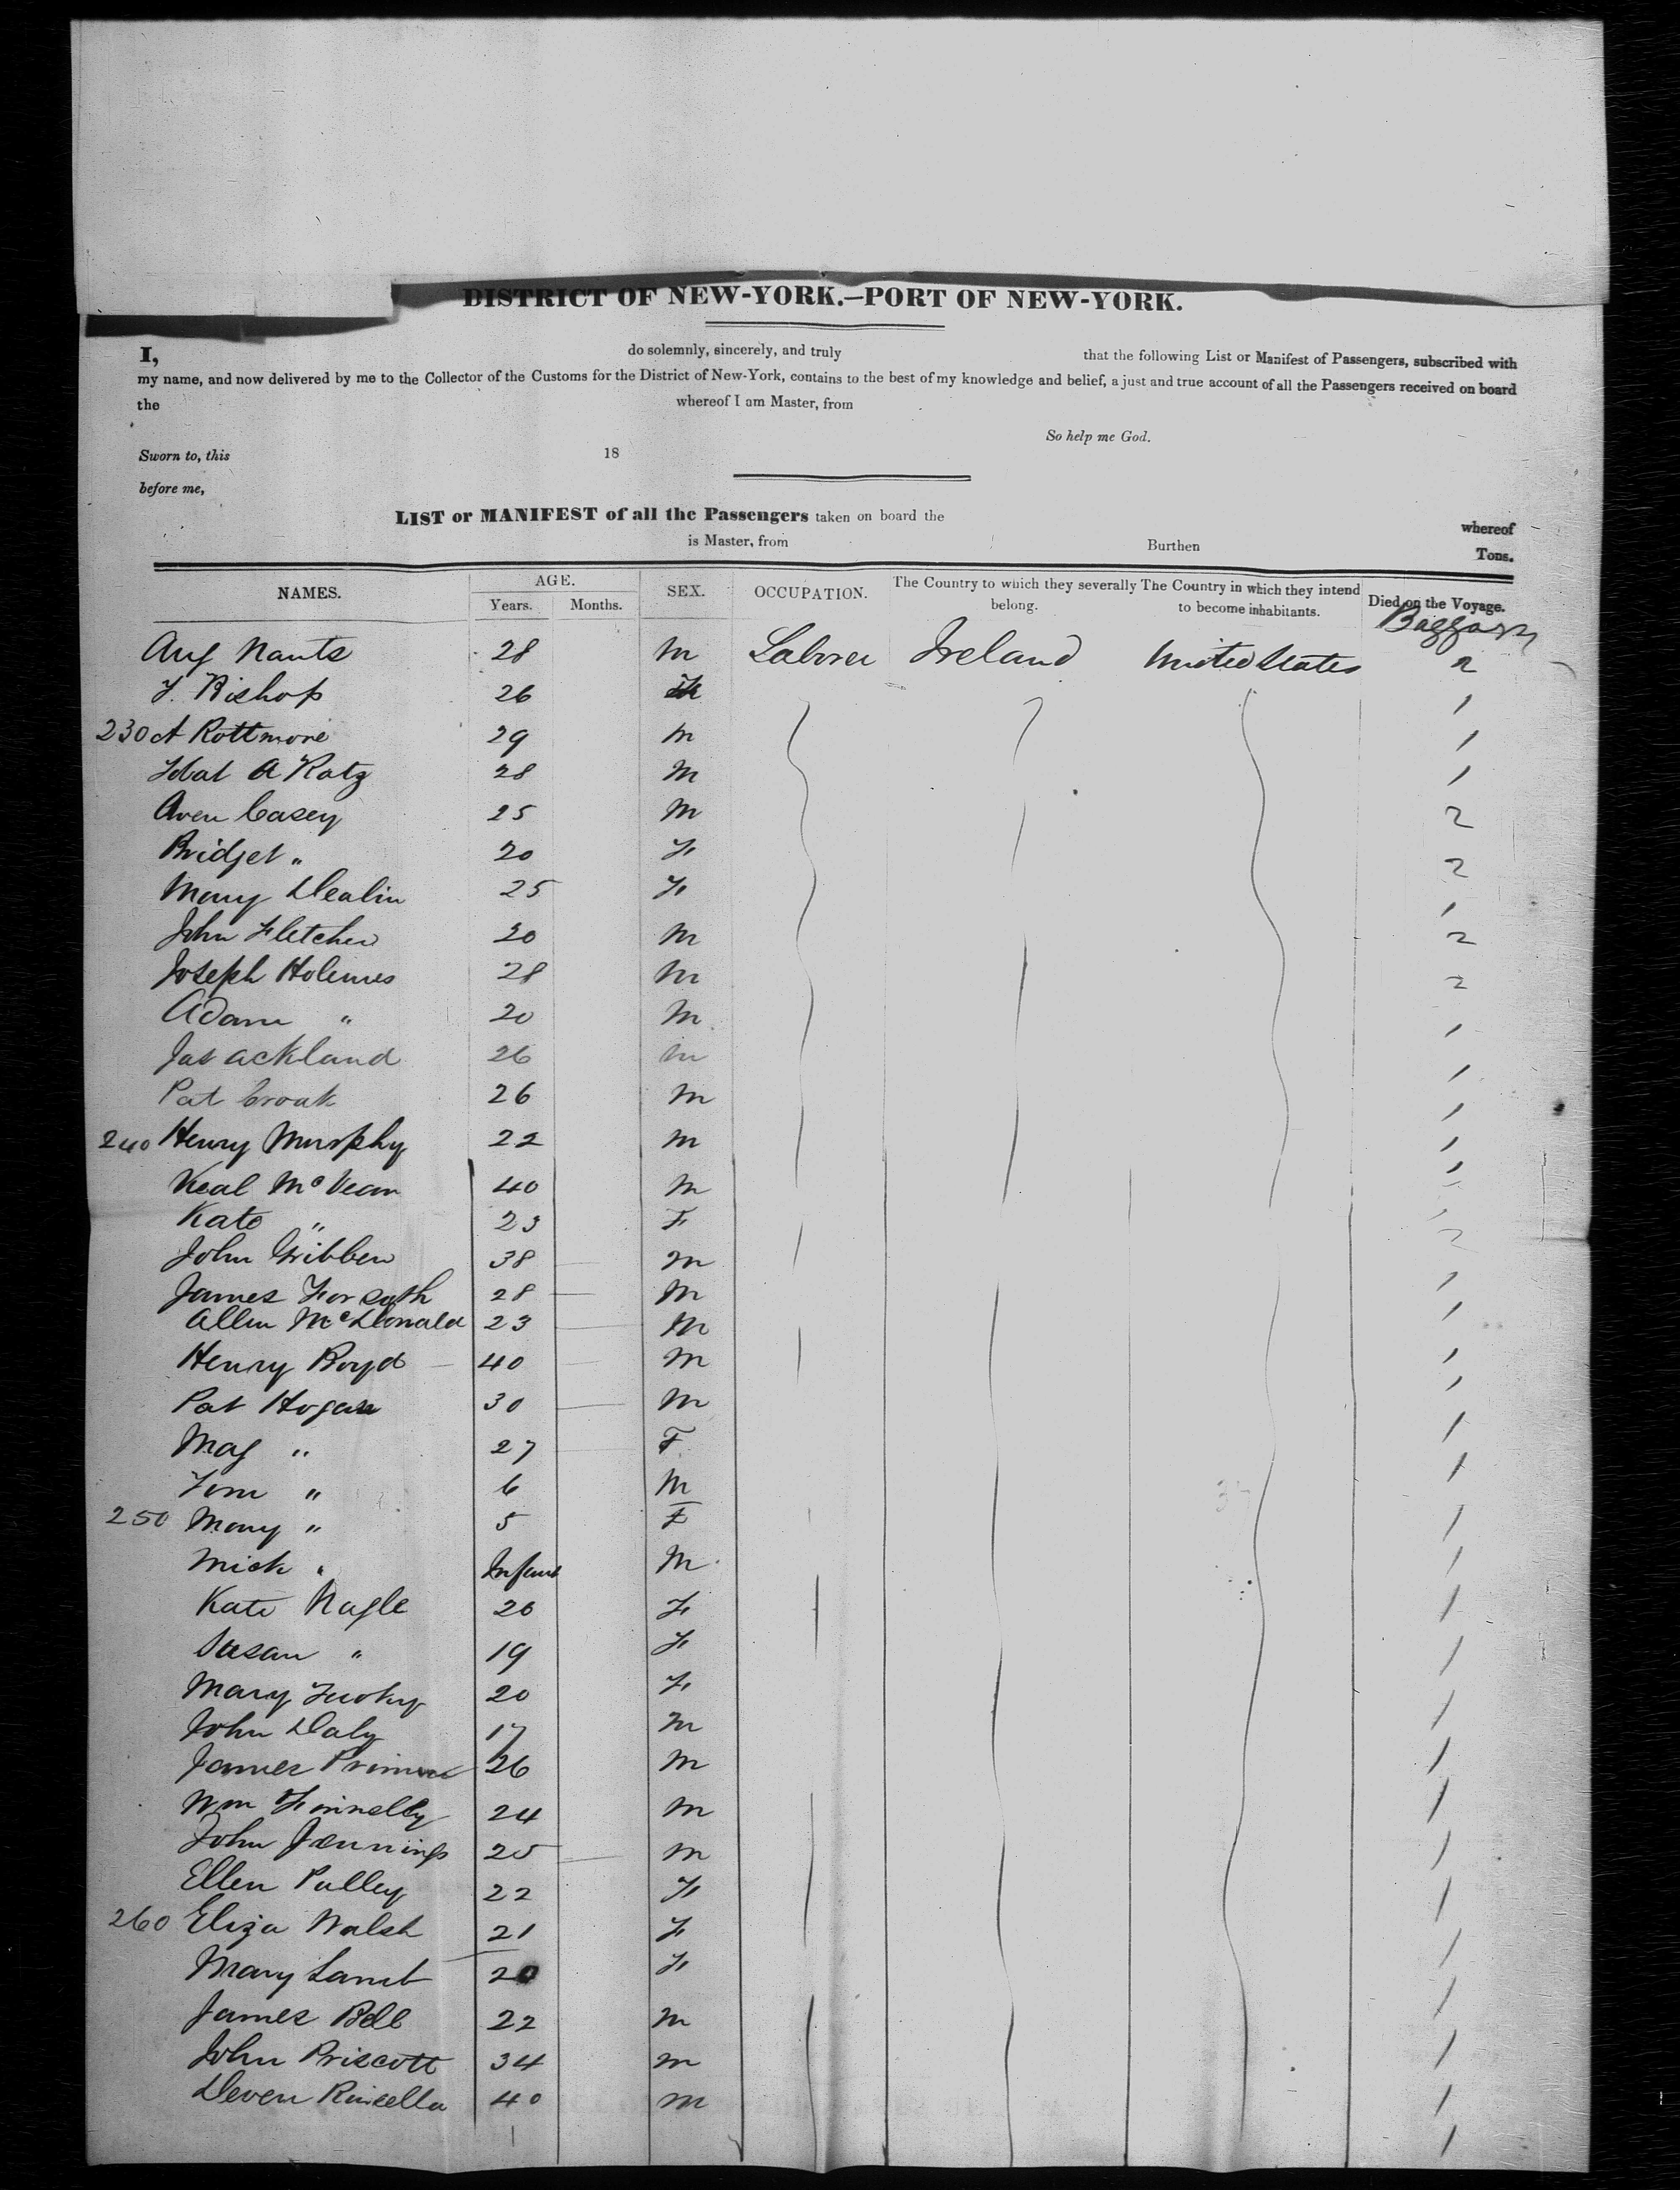 DISTRICT OF NEW-YORK.—PORT OF NEW-YORK.
I, do solemnly, sincerely, and truly that the following List or Manifest of Passengers, subscribed with
my name, and now delivered by me to the Collector of the Customs for the District of New-York, contains to the best of my knowledge and belief, a just and true account of all the Passengers received on board
the whereof I am Master, from
So help me God.
Sworn to, this 18
before me,
LIST or MANIFEST of all the Passengers taken on board the whereof
is Master, from Burthen Tons.
NAMES. AGE. Years. Months. SEX. OCCUPATION. The Country to which they severally belong. The Country in which they intend to become inhabitants. Died on the Voyage.
Aug Nantz 28 M Laborer Ireland United States 2
J. Bishop 26 1
230 A Rottmore 29 M 1
A Katz 28 M 1
Owen Casey 25 M 2
Bridget " 20 F 2
Mary Dealin 25 F 1
John Fletcher 20 M 2
Joseph Holemes 28 M 2
Adam " 20 M 1
Jas Ackland 26 M 1
Pat Croak 26 M 1
240 Henry Murphy 22 M 1
Neal McVean 40 M 1
Kate " 23 F
John Gribben 38 M
James Forsyth 28 M 1
Allen McDonald 23 M 1
Henry Boyd 40 M 1
Pat Hogan 30 M 1
Mag " 27 F 1
Tom " 6 M 1
250 Mary " 5 F 1
Mick " Infant M 1
Kate Nagle 26 F 1
Susan " 19 F 1
Mary 20 F 1
John Daly 17 M 1
James 26 M 1
Wm Finnelly 24 M 1
John Jennings 25 M 1
Ellen Pulley 22 F 1
260 Eliza Walsh 21 F 1
Mary Lamb 20 F 1
James Bell 22 M 1
John Priscott 34 M 1
Deven Kinsella 40 M 1